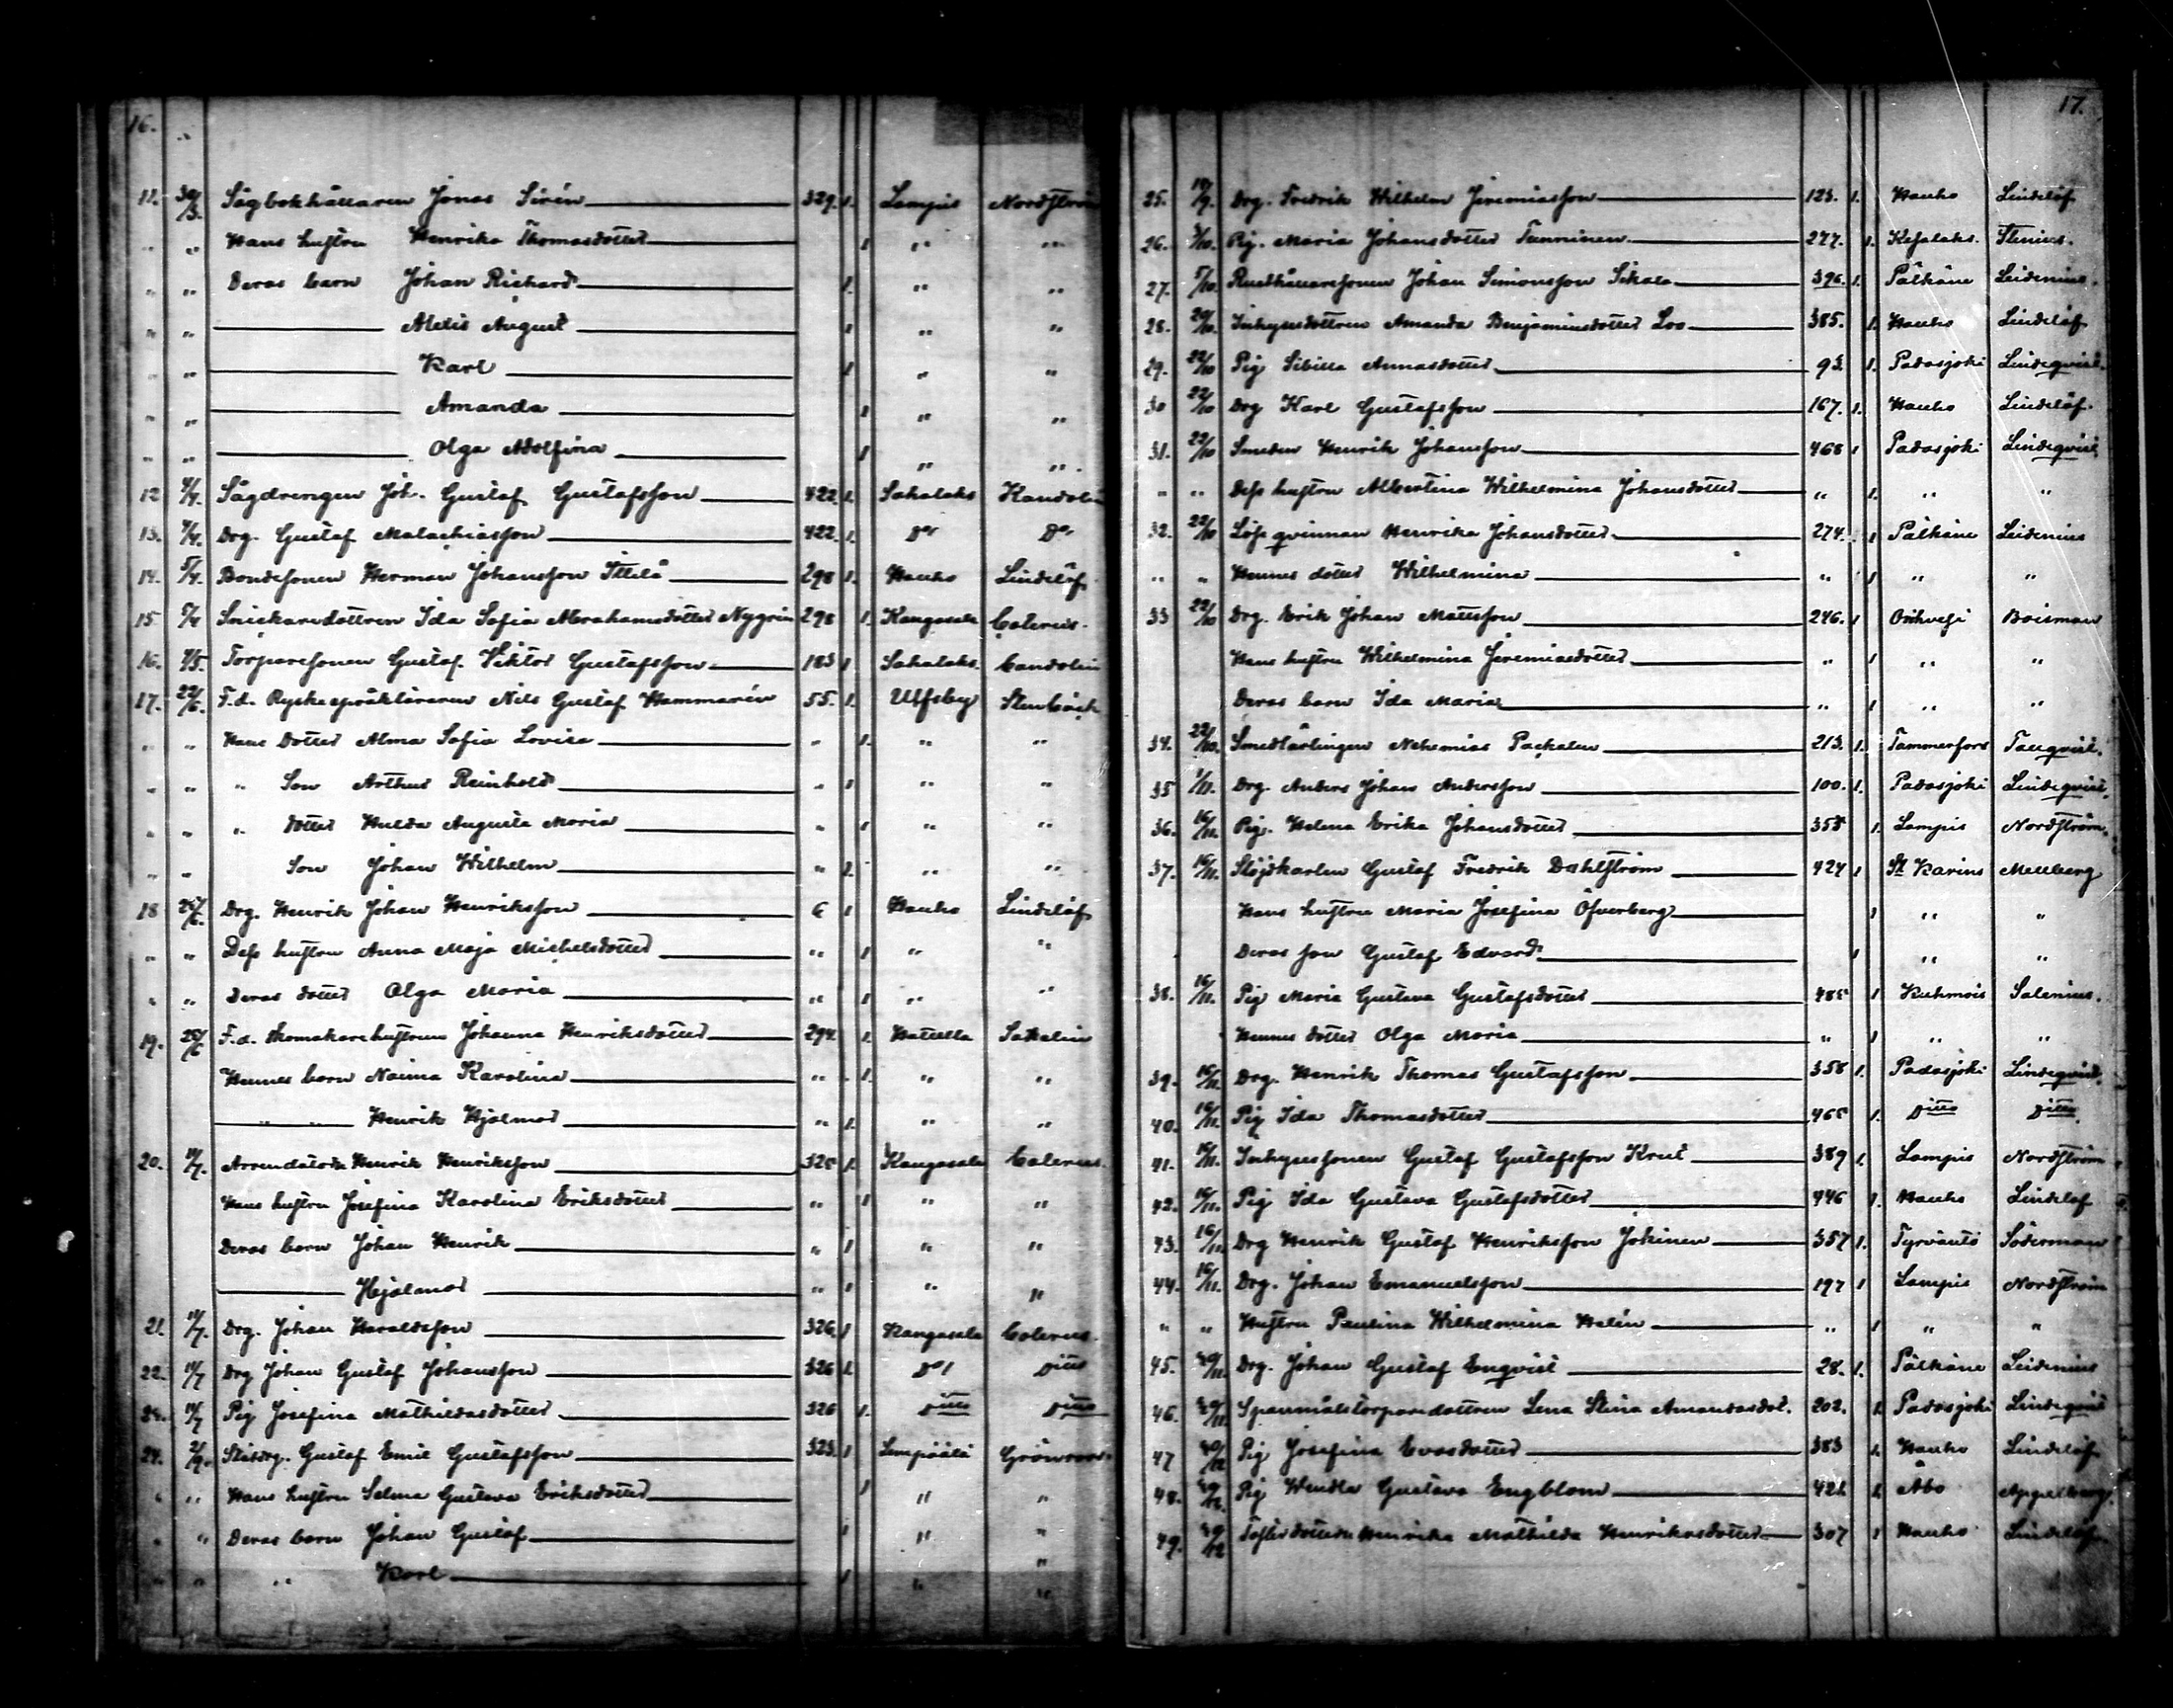 16.
11. 30/3. Sågbokhållaren Jonas Sirén 329. 1. Lampis Nordström
" " Hans hustru Henrika Thomasdotter 1 " "
" " Deras barn Johan Richard 1. " "
" " Alexis August 1 " "
" " Karl 1 " "
" " Amanda 1 " "
" " Olga Adolfina 1 " "
12 4/4. Sågdrengen Joh. Gustaf Gustafsson 422. 1. Sahalaks Kandolin
13. 4/4. Drg. Gustaf Malachiasson 422. 1. Do Do
14. 5/4. Bondesonen Herman Johansson Ittilä 298 1. Hauho Lindelöf
15 5/4 Snickaredottren Ida Sofia Abrahamsdotter Nygrén 298 1. Kangasala Calenius.
16. 7/5. Torparesonen Gustaf Viktor Gustafsson 183 1. Sahalaks. Candolin
17. 22/6. F.d. Ryskaspråkläraren Nils Gustaf Hammarén 55. 1. Ulfsby Stenbäck
" " Hans Dotter Alma Sofia Lovisa " 1. " "
" " " Son Arthur Reinhold " 1 " "
" " " dotter Hulda Augusta Maria " 1 " "
" " Son Johan Wilhelm " 1. " "
18 25/6. Drg. Henrik Johan Henriksson 6 1 Hauho Lindelöf
" " Dess hustru Anna Maja Michelsdotter " 1 " "
" " Deras dotter Olga Maria " 1 " "
19. 25/6 F.d. Skomakarehustrun Johanna Henriksdotter 294. 1. Hattula Sahalin
Hennes barn Naima Karolina " 1. " "
" " Henrik Hjalmar " 1. " "
20. 14/7. Arrendatorn Henrik Henriksson 325 1. Kangasala Calenius.
Hans hustru Josefina Karolina Eriksdotter " 1 " "
Deras barn Johan Henrik " 1 " "
Hjalmar " 1 " "
21. 14/7. Drg. Johan Haraldsson 326. 1 Kangasala Calenius.
22. 14/7 Drg Johan Gustaf Johansson 326 1. Do Ditto
23. 14/7 Pig Josefina Mathildasdotter 326 1. Ditto Ditto
24. 2/9. Statdrg. Gustaf Emil Gustafsson 323. 1 Lempäälä Grönroos.
" " Hans hustru Selma Gustava Eriksdotter 1 " "
" " Deras barn Johan Gustaf 1 " "
" " " Karl 1 " "
17.
25. 17/9. Drg. Fredrik Wilhelm Jeremiasson 123. 1. Hauho Lindelöf
26. 3/10. Pig. Maria Johansdotter Tamminen 277. 1. Kesalaks. Stenius.
27. 5/10. Rusthållaresonen Johan Simonsson Sikala 396. 1. Pälkäne Leidenius.
28. 20/10. Inhysesdottren Amanda Benjaminsdotter Loo 385. 1. Hauho Lindelöf
29. 22/10 Pig Sibilla Annasdotter 93. 1. Padasjoki Lindeqvist.
30 22/10 Drg Karl Gustafsson 167. 1. Hauho Lindelöf.
31. 22/10 Smeden Henrik Johansson 468 1 Padasjoki Lindeqvist
" " Dess hustru Albertina Wilhelmina Johansdotter " 1. " "
32. 22/10 Lösqvinnan Henrika Johansdotter 274. 1 Pälkäne Leidenius
" " Hennes dotter Wilhelmina " 1 " "
33 22/10 Drg. Erik Johan Mattsson 246. 1 Orihvesi Boisman
Hans hustru Wilhelmina Jeremiasdotter " 1 " "
Deras barn Ida Maria " 1 " "
34. 22/10. Smedlärlingen Nehemias Packalen 213. 1. Tammerfors Tanqvist.
35 1/11. Drg. Anders Johan Andersson 100. 1. Padasjoki Lindeqvist.
36. 16/11. Pig. Helena Erika Johansdotter 355 1. Lampis Nordström.
37. 16/11. Slöjdkarlen Gustaf Fredrik Dahlström 424 1 St Karins Mellberg
Hans hustru Maria Josefina Öfverberg 1 " "
Deras son Gustaf Edvard 1 " "
38. 16/11. Pig Maria Gustava Gustafsdotter 485 1 Kuhmois Salenius.
Hennes dotter Olga Maria " 1 " "
39. 16/11. Drg. Henrik Thomas Gustafsson 358 1. Padasjoki Lindeqvist.
40. 16/11. Pig Ida Thomasdotter 465 1. Ditto Ditto.
41. 16/11. Inhysessonen Gustaf Gustafsson Krut 389 1. Lampis Nordström
42. 16/11. Pig Ida Gustava Gustafsdotter 446 1. Hauho Lindelöf
43. 16/11. Drg Henrik Gustaf Henriksson Jokinen 357 1. Tyrväntö Söderman
44. 16/11. Drg. Johan Emanuelsson 197 1 Lampis Nordström
" " Hustru Paulina Wilhelmina Helén " 1 " "
45. 30/11. Drg. Johan Gustaf Enqvist 28. 1. Pälkäne Leidenius
46. 30/11. Spannmålstorparedottren Lena Stina Amandasdot. 202. 1. Padasjoki Lindeqvist
47 30/12 Pig Josefina Evasdotter 383 1. Hauho Lindelöf
48. 30/12. Pig Wendla Gustava Engblom 421. 1. Åbo Appelberg.
49. 30/12 Henrika Mathilda Henrikasdotter 307 1 Hauho Lindelöf